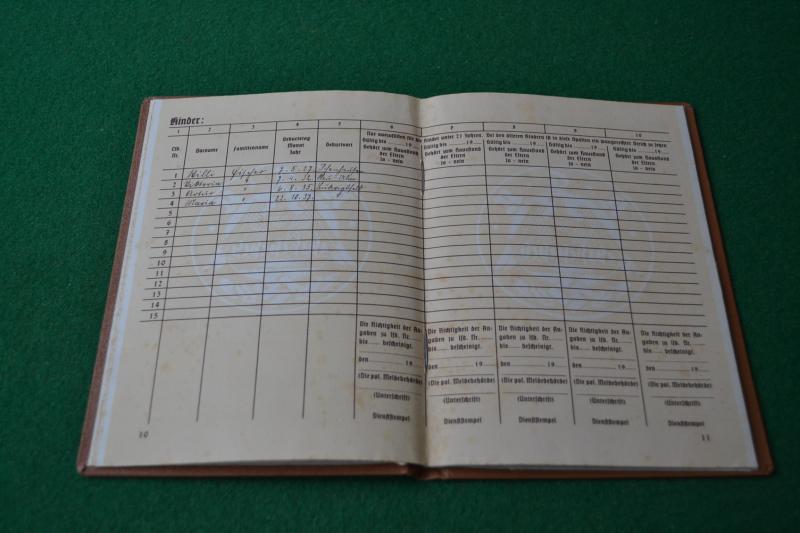 Kinder:
1 2 3 4 5 6 7 8 9 10
Nur auszufüllen für Kinder unter 21 Jahren. Bei den älteren Kindern ist in diese Spalten ein waagerechter Strich zu ziehen
Lfd. Nr. Vorname Familienname Geburtstag Monat Jahr Geburtsort
Gültig bis 19 Gültig bis 19 Gültig bis 19 Gültig bis 19 Gültig bis 19
Gehört zum Hausstand der Eltern ja - nein Gehört zum Hausstand der Eltern ja - nein Gehört zum Hausstand der Eltern ja - nein Gehört zum Hausstand der Eltern ja - nein Gehört zum Hausstand der Eltern ja - nein
1 Willi
2 "
3 "
4 Maria " 22. 10. 37. "
5
6
7
8
9
10
11
12
13
14
15
Die Richtigkeit der An- Die Richtigkeit der An- Die Richtigkeit der An- Die Richtigkeit der An- Die Richtigkeit der An-
gaben zu lfd. Nr. gaben zu lfd. Nr. gaben zu lfd. Nr. gaben zu lfd. Nr. gaben zu lfd. Nr.
bis bescheinigt. bis bescheinigt. bis bescheinigt. bis bescheinigt. bis bescheinigt.
den 19 den 19 den 19 den 19 den 19
(Die pol. Meldebehörde) (Die pol. Meldebehörde) (Die pol. Meldebehörde) (Die pol. Meldebehörde) (Die pol. Meldebehörde)
(Unterschrift) (Unterschrift) (Unterschrift) (Unterschrift) (Unterschrift)
Dienststempel Dienststempel Dienststempel Dienststempel Dienststempel
10 11